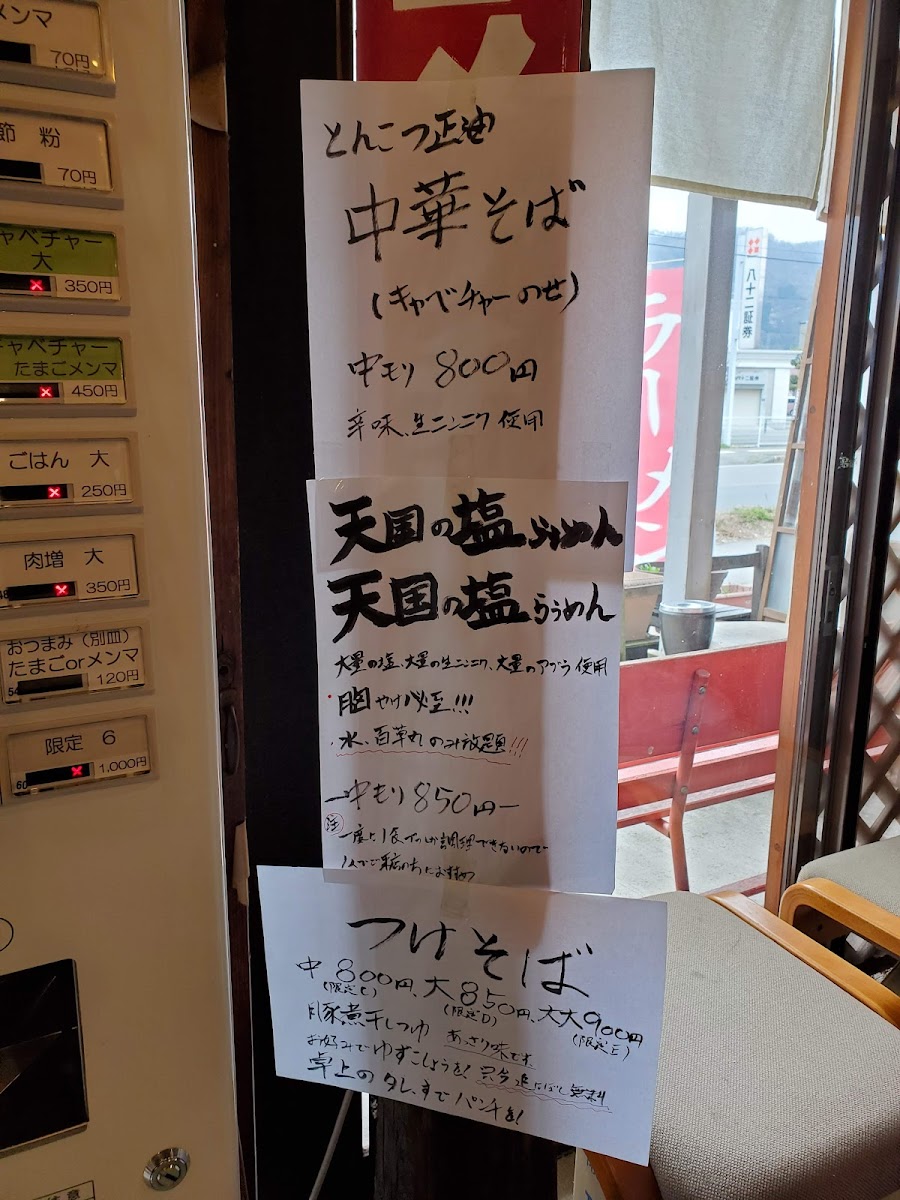 メンマ
70円
節 粉
70円
ャベチャー
大
350円
ャベチャー
たまごメンマ
450円
ごはん 大
250円
肉増 大
350円
おつまみ(別皿)
たまごorメンマ
120円
限定 6
60
1,000円
とんこつ正油
中華そば
(キャベチャーのせ)
中モリ 800円
辛味、生ニンニク使用
天国の塩らうめん
天国の塩らうめん
大量の塩、大量の生ニンニク、大量のアブラ使用
・胸やけ必至!!!
・水、百草丸のみ放題!!!
ー中モリ850円ー
注
一度に1食づつしか調理できないので
つけそば
中800円、大850円、大大900円
(限定C) (限定D) (限定E)
豚煮干しつゆ あっさり味です
お好みでゆずこしょうを!
卓上のタレ、すでパンチを!
八十二証券
ラーメ